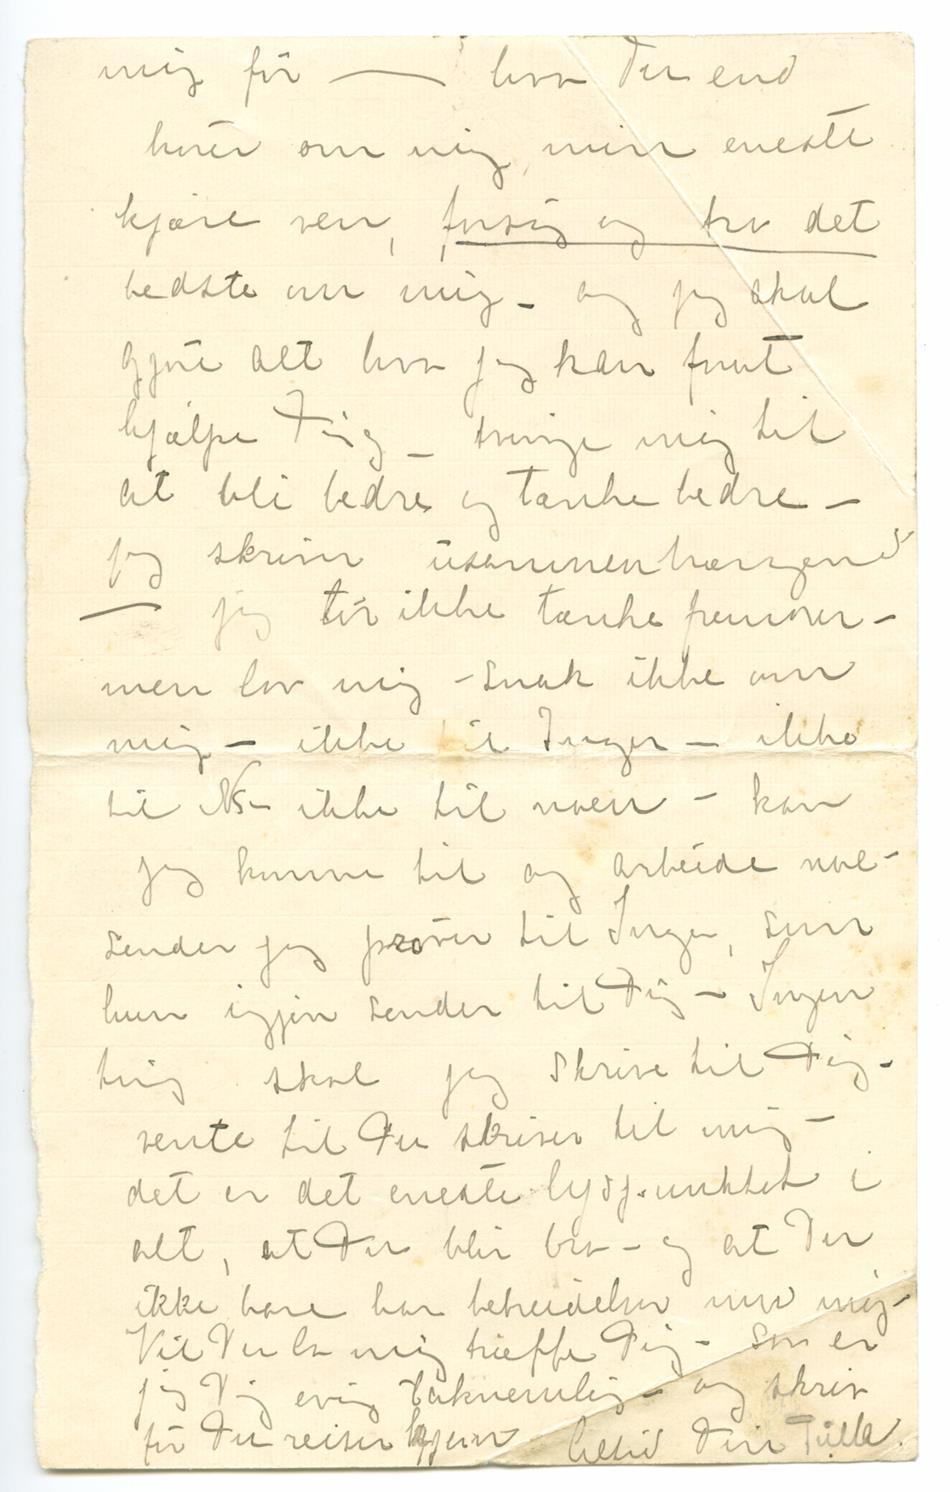 mig för — hva Du end
hører om mig, min eneste
kjære ven, forsög og tro det
bedste om mig – og jeg skal
gjöre alt hva jeg kan forat
hjælpe Dig – tvinge mig til
at bli bedre og tænke bedre –
jeg skriver usammenhængend
— jeg tör ikke tænke fremover –
men lov mig – snak ikke om
mig – ikke til Inger – ikke
til NS – ikke til noen – kan
jeg komme til og arbeide noe –
sender jeg pröver til Inger, som
hun igjen sender til Dig – Ingen
ting skal jeg skrive til Dig –
vente til Du skriver til mig –
det er det eneste lyspunktet i
alt, at Du blir bra – og at Du
ikke bare har bebreidelser mod mig –
Vil Du la mig træffe Dig – saa er
jeg Dig evig taknemlig – og skriv
för Du reiser hjem Altid Din Tulla.